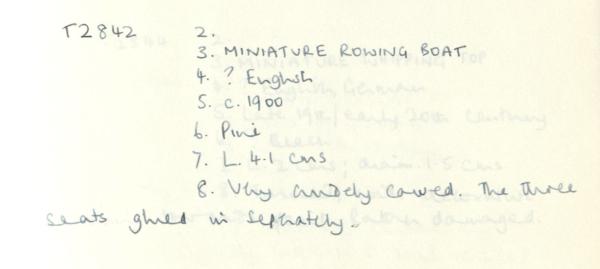 T2842 2.
3. MINIATURE ROWING BOAT
4. ? English
5. c. 1900
6. Pine
7. L. 4.1 cms
8. Very crudely carved. The three
seats glued in separately.